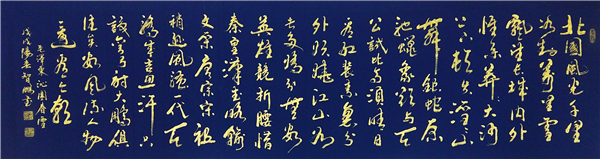 北國風光千里
冰封萬里雪
飄望長城內外
惟余莽莽大河
上下頓失滔滔山
舞銀蛇原
馳蠟象欲与天
公試比高須晴日
看紅裝素裹分
外妖嬈江山如
此多嬌引無數
英雄競折腰惜
秦皇漢武略輸
文采唐宗宋祖
稍遜風騷一代天
驕成吉思汗只
識彎弓射大鵰俱
往矣數風流人物
還看今朝
毛澤東沁園春雪
戊戌陽春智鵬書